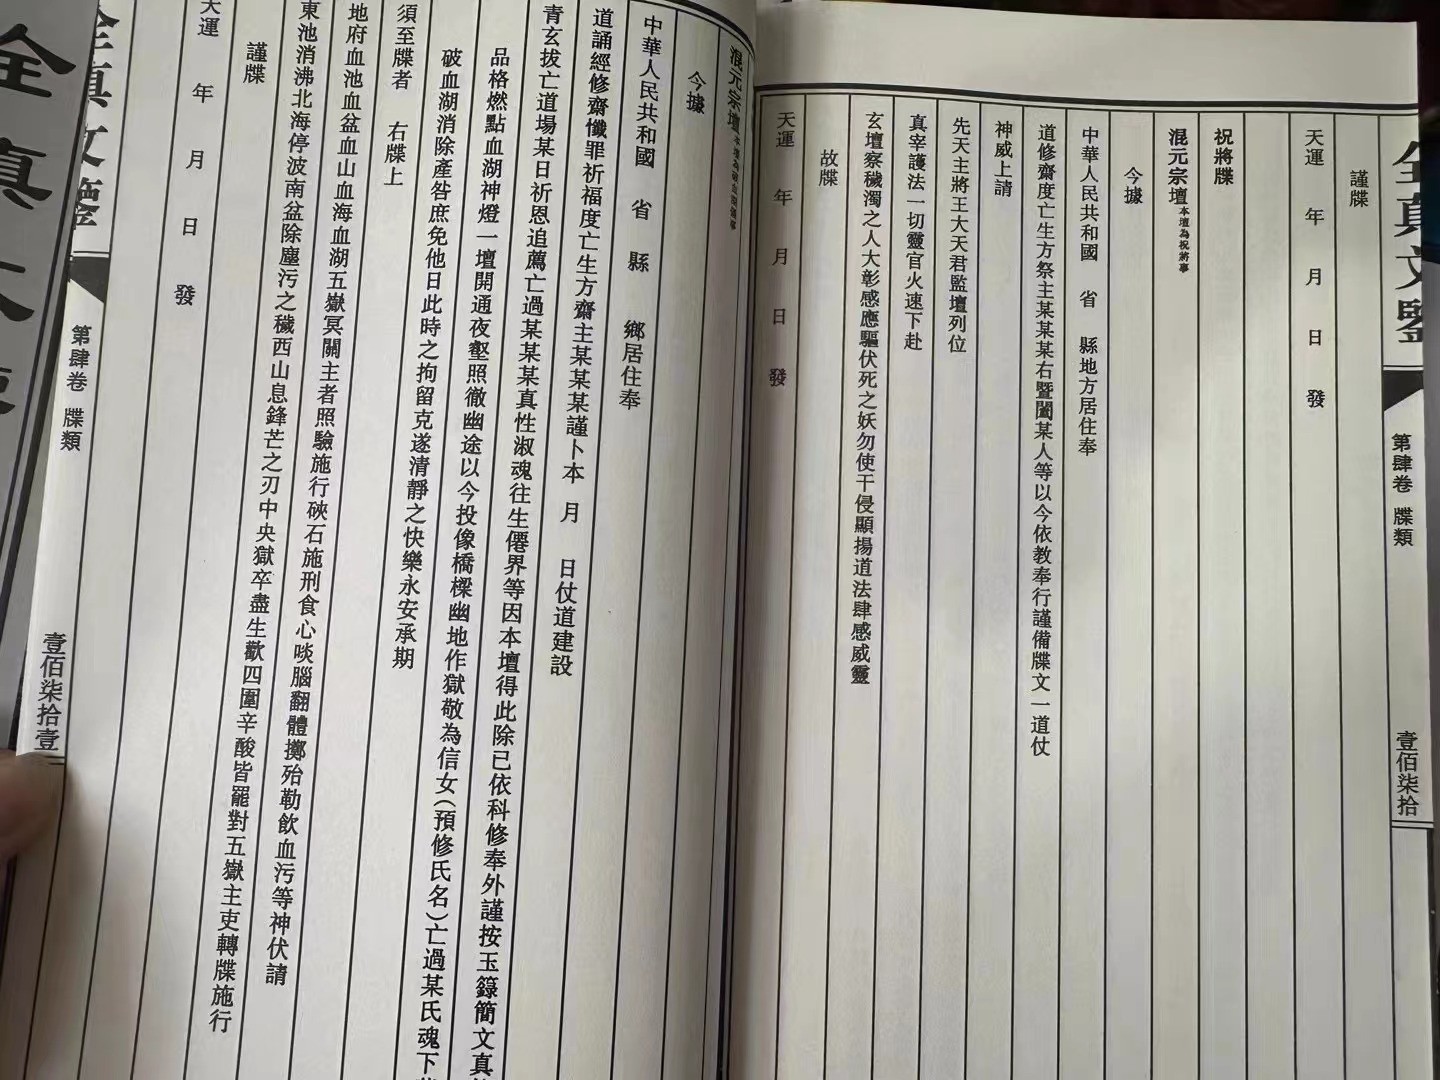 全真文鑒
第肆卷 牒類
壹佰柒拾
謹牒
天運 年 月 日 發
祝將牒
混元宗壇本壇為祝將事
今據
中華人民共和國 省 縣地方居住奉
道修齋度亡生方祭主某某某右暨闔某人等以今依教奉行謹備牒文一道仗
神威上請
先天主將王大天君監壇列位
真宰護法一切靈官火速下赴
玄壇察穢濁之人大彰感應驅伏死之妖勿使干侵顯揚道法肆感威靈
故牒
天運 年 月 日 發
混元宗壇
今據
中華人民共和國 省 縣 鄉居住奉
道誦經修齋懺罪祈福度亡生方齋主某某某謹卜本 月 日仗道建設
青玄拔亡道場某日祈恩追薦亡過某某某真性淑魂往生僊界等因本壇得此除已依科修奉外謹按玉籙簡文真
品格燃點血湖神燈一壇開通夜壑照徹幽途以今投像橋樑幽地作獄敬為信女(預修氏名)亡過某氏魂下
破血湖消除產咎庶免他日此時之拘留克遂清靜之快樂永安承期
須至牒者 右牒上
地府血池血盆血山血海血湖五嶽冥關主者照驗施行硤石施刑食心啖腦翻體擲殆勒飲血污等神伏請
東池消沸北海停波南盆除塵污之穢西山息鋒芒之刃中央獄卒盡生歡四圍辛酸皆罷對五嶽主吏轉牒施行
謹牒
天運 年 月 日 發
第肆卷 牒類
壹佰柒拾壹